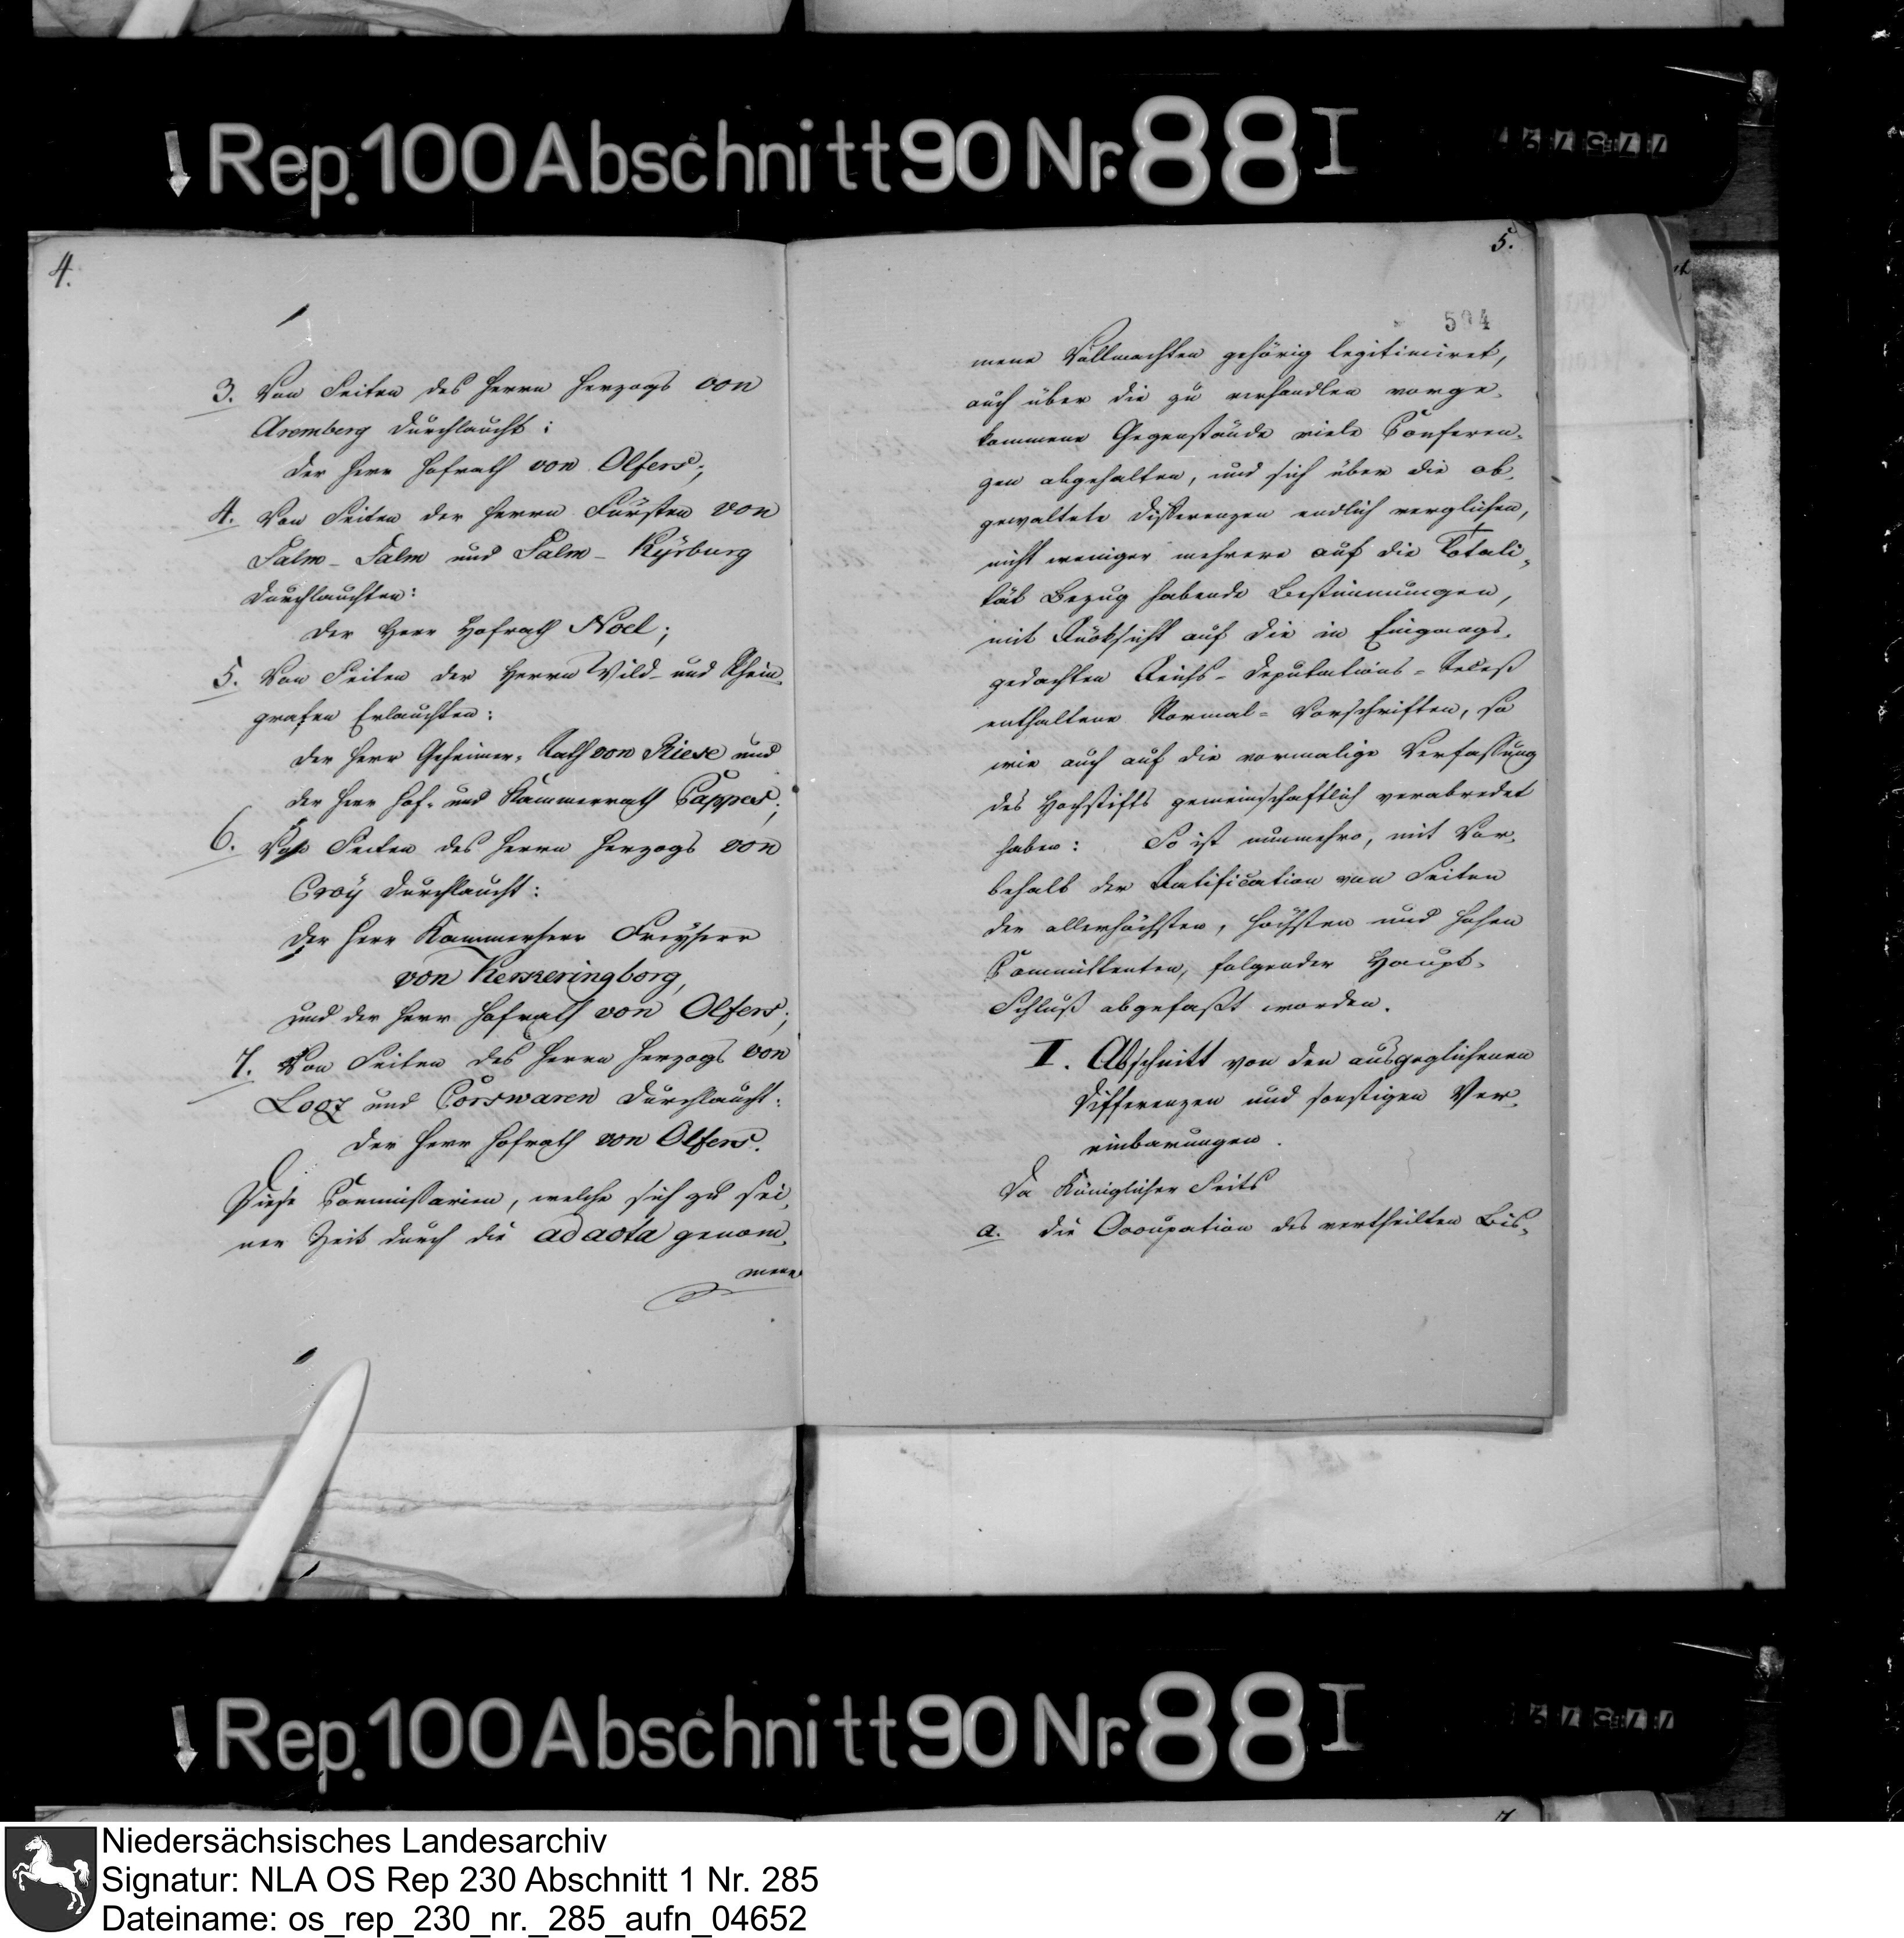 Rep. 100 Abschnitt 90 Nr. 88 I
4.
3. Von Seiten des Herrn Herzogs von
Aremberg Durchlaucht:
der Herr Hofrath von Olfers;
4. Von Seiten der Herrn Fürsten von
Salm-Salm und Salm-Kyrburg
Durchlauchten:
der Herr Hofrath Noel;
5. Von Seiten der Herrn Wild- und Rhein-
grafen Erlauchten:
der Herr Geheimer-Rath von Riese und
der Herr Hof- und Kammerrath Cappes;
6. Von Seiten des Herrn Herzogs von
Croÿ Durchlaucht:
der Herr Kammerherr Freyherr
von Kerkeringborg,
und der Herr Hofrath von Olfers;
7. Von Seiten des Herrn Herzogs von
Looz und Corswaren Durchlaucht:
der Herr Hofrath von Olfers.
Diese Commissarien, welche sich zu sei-
ner Zeit durch die ad acta genom-
mene
5.
504
mene Vollmachten gehörig legitimiret,
auch über die zu verhandlen vorge-
kommene Gegenstände viele Conferen-
zen abgehalten, und sich über die ob-
gewaltete Differenzen endlich verglichen,
nicht weniger mehrere auf die Totali-
tät Bezug habende Bestimmungen,
mit Rücksicht auf die in Eingangs-
gedachten Reichs-Deputations-Receß
enthaltene Normal-Vorschriften, so
wie auch auf die vormalige Verfassung
des Hochstifts gemeinschaftlich verabredet
haben: So ist nunmehro, mit Vor-
behalt der Ratification von Seiten
der allerhöchsten, höchsten und hohen
Committenten, folgender Haupt-
Schluß abgefaßt worden.
I. Abschnitt von den ausgeglichenen
Differenzen und sonstigen Ver-
einbarungen.
Da Königlicher Seits
a. die Occupation des vertheilten Bis-
Rep. 100 Abschnitt 90 Nr. 88 I
7
Niedersächsisches Landesarchiv
Signatur: NLA OS Rep 230 Abschnitt 1 Nr. 285
Dateiname: os_rep_230_nr._285_aufn_04652